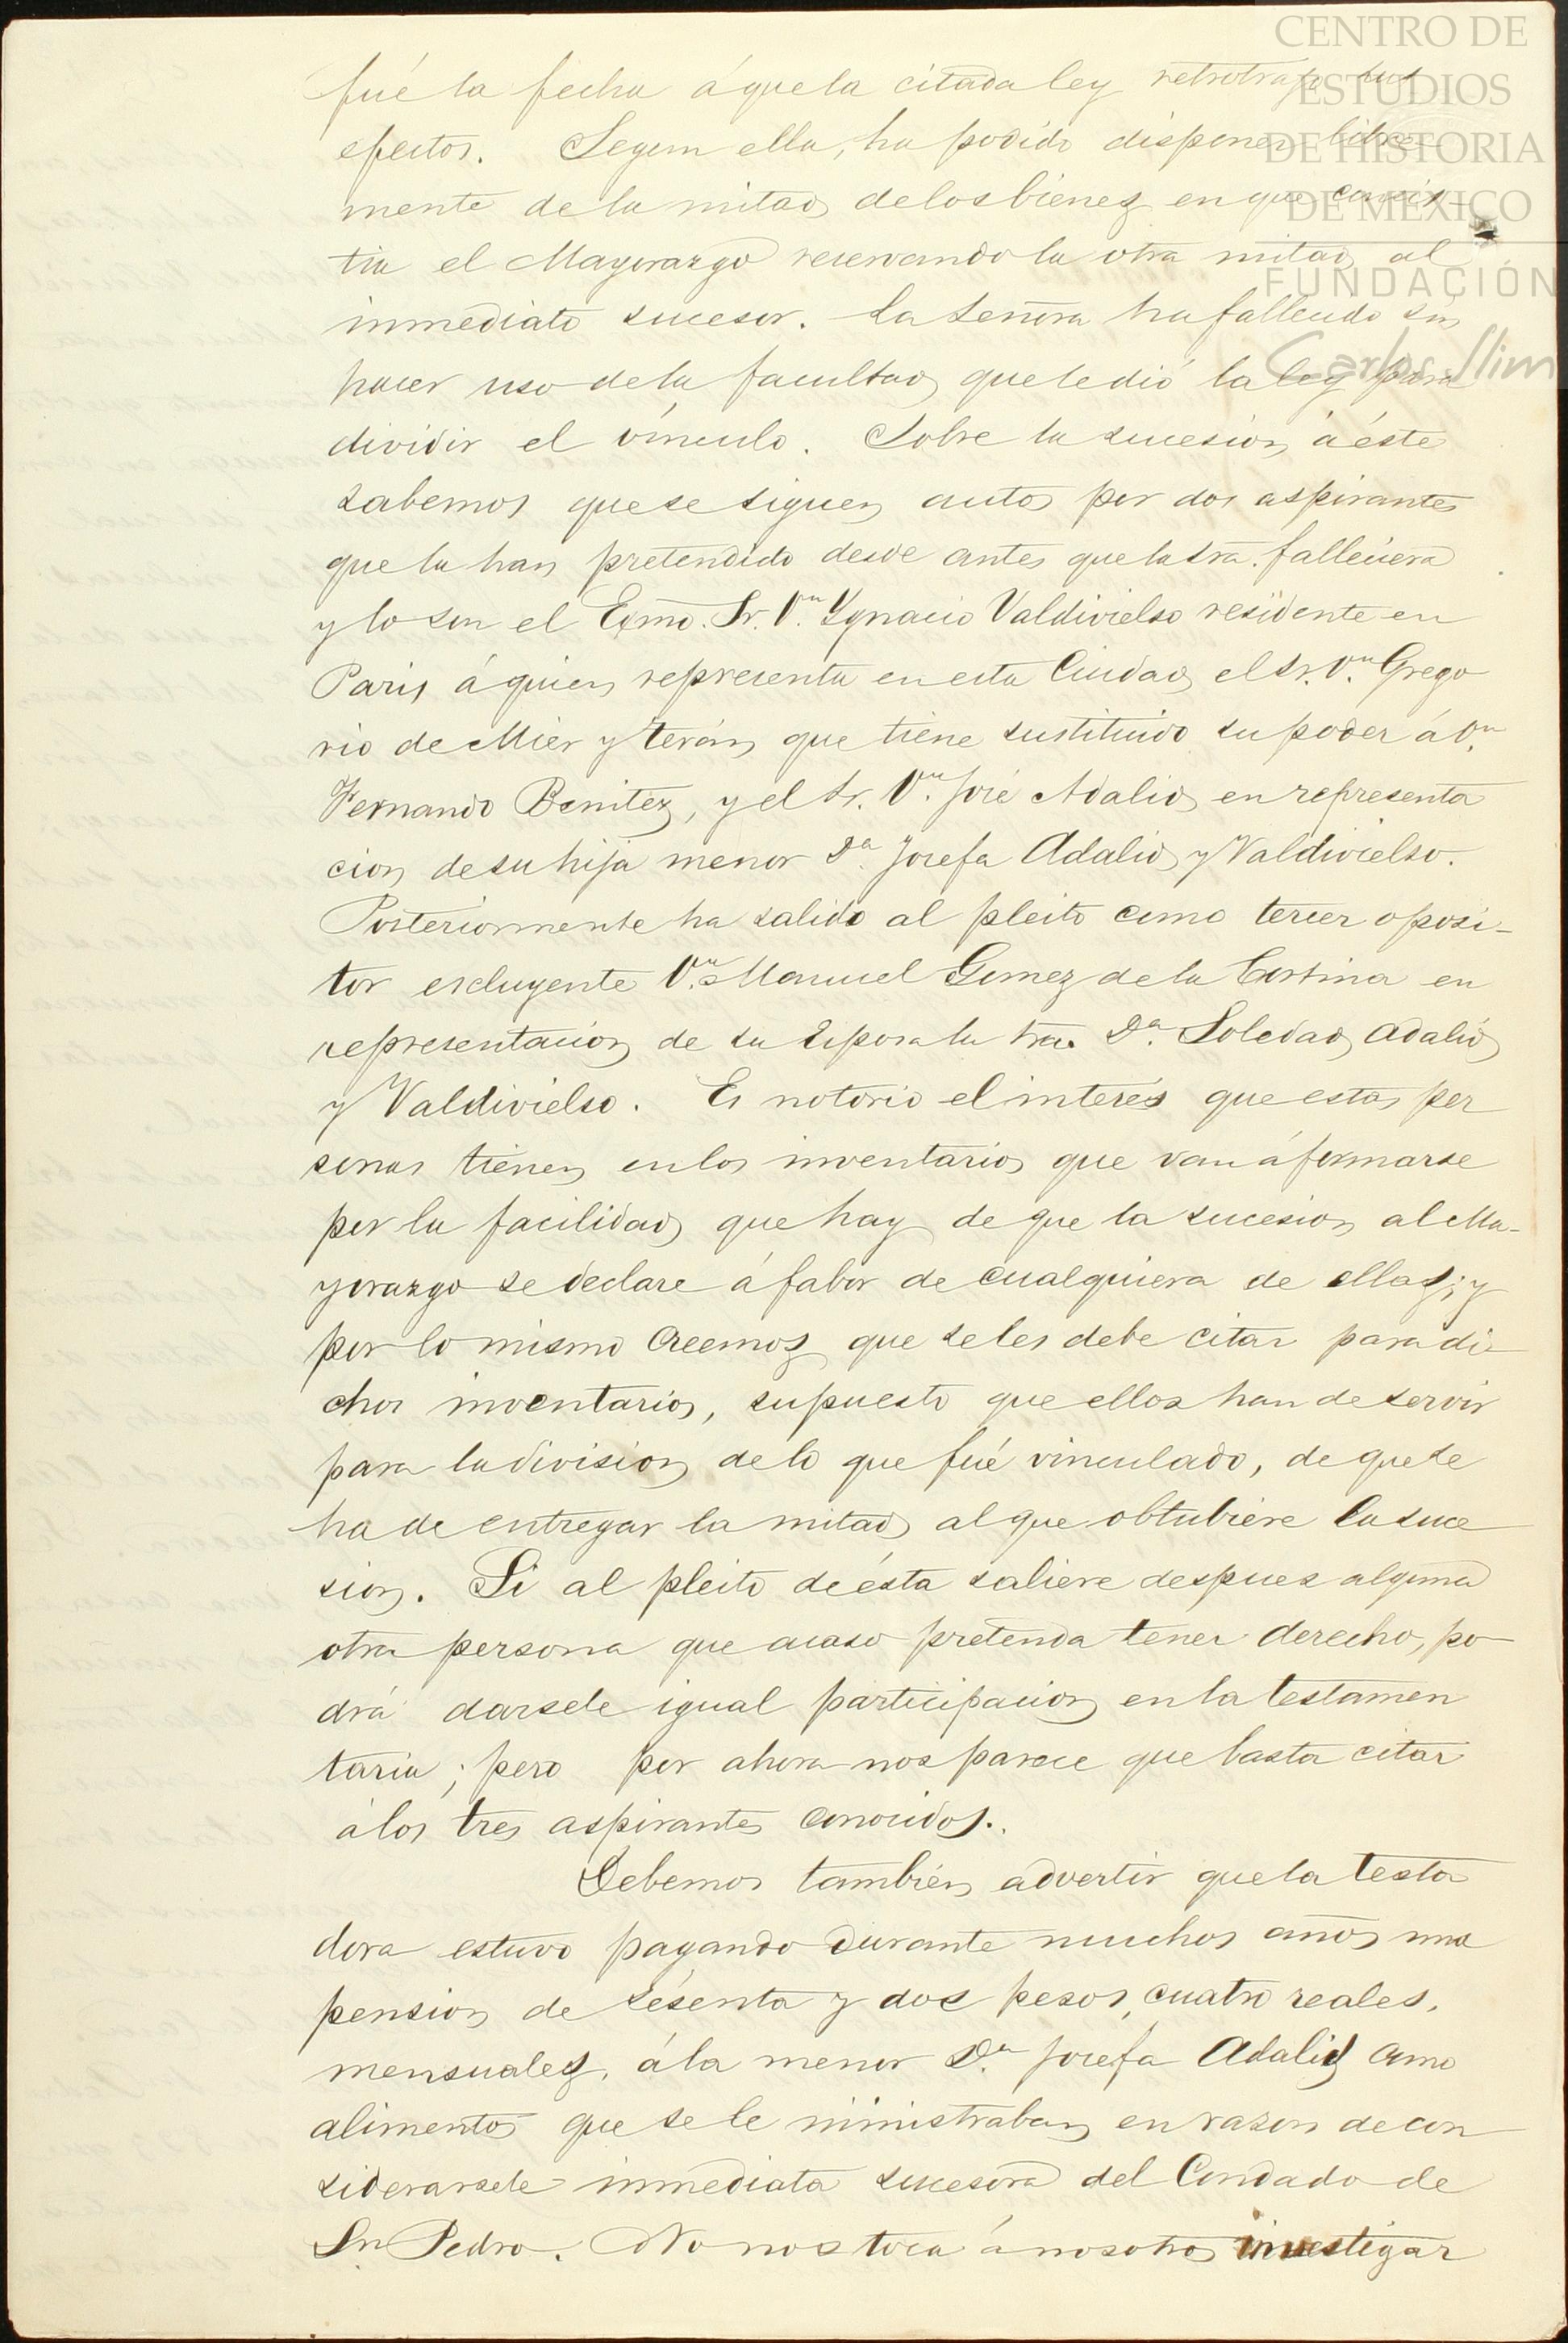 CENTRO DE
ESTUDIOS
DE HISTORIA
DE MÉXICO
FUNDACIÓN
Carlos Slim
fué la fecha á que la citada ley retrotrajo sus
efectos. Segun ella, ha podido disponer libre
mente de la mitad de los bienes en que consis-
tia el Mayorazgo reservando la otra mitad al
inmediato sucesor. La Señora ha fallecido sin
hacer uso de la facultad que le dió la ley para
dividir el vínculo. Sobre la sucesion á éste
sabemos que se siguen autos por dos aspirantes
que la han pretendido desde antes que la Sra. falleciera
y lo son el Exmo. Sr. Dn. Ygnacio Valdivielso residente en
Paris á quien representa en esta Ciudad el Sr. Dn. Grego
rio de Mier y terán que tiene sustituido su poder á Dn.
Fernando Benitez, y el Sr. Dn. José Adalid en representa
cion de su hija menor Da. Josefa Adalid y Valdivielso.
Posteriormente ha salido al pleito como tercer oposi-
tor escluyente Dn. Manuel Gomez de la Cortina en
representacion de su Esposa la Sra. Da. Soledad Adalid
y Valdivielso. Es notorio el interés que estas per
sonas tienen en los inventarios que van á formarse
por la facilidad que hay de que la sucesion al Ma-
yorazgo se declare á fabor de cualquiera de ellas; y
por lo mismo creemos que se les debe citar para di-
chos inventarios, supuesto que ellos han de servir
para la division de lo que fué vinculado, de que se
ha de entregar la mitad al que obtubiere la suce
sion. Si al pleito de ésta saliere despues alguna
otra persona que acaso pretenda tener derecho, po-
drá darsele igual participacion en la testamen
taria; pero por ahora nos parece que basta citar
á los tres aspirantes conocidos.
Debemos tambien advertir que la testa
dora estuvo pagando durante muchos años una
pension de sesenta y dos pesos, cuatro reales,
mensuales, á la menor Da. Josefa Adalid como
alimentos que se le ministraban en razon de con
siderarsele inmediata sucesora del Condado de
Sn Pedro. No nos toca á nosotros investigar